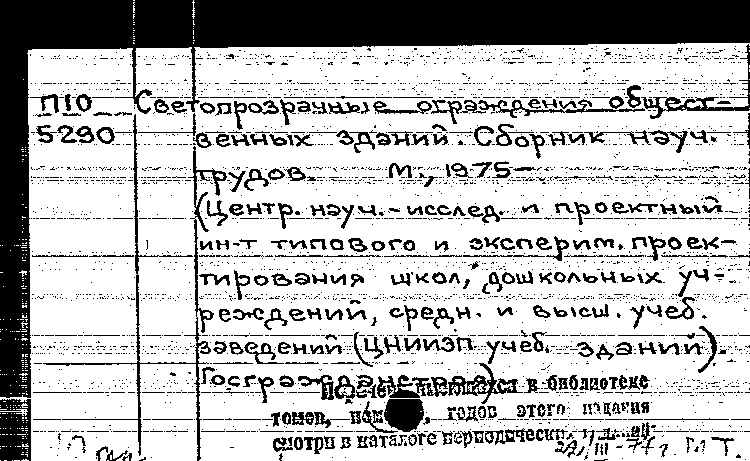 П10 Светопрозрачные ограждения общест-
5290 венных зданий. Сборник науч.
трудов. М., 1975-
(Центр. науч.-исслед. и проектный
ин-т типового и эксперим. проек-
тирования школ, дошкольных уч-
реждений, средн. и высш. учеб.
заведений (ЦНИИЭП учеб. зданий).
Госгражданстроя)
Перечень имеющихся в библиотеке
томов, годов этого издания
смотри в каталоге периодических